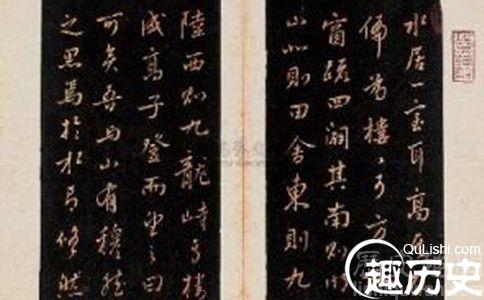 水居一室耳高
偏為樓〻可方
窗疏四闢其南則
山北則田舍東則九
陸西則九龍峙焉樓
成高子登而望之曰
可矣吾於山有穆然
之思焉於水有悠然
QuLiShi.com
趣历史